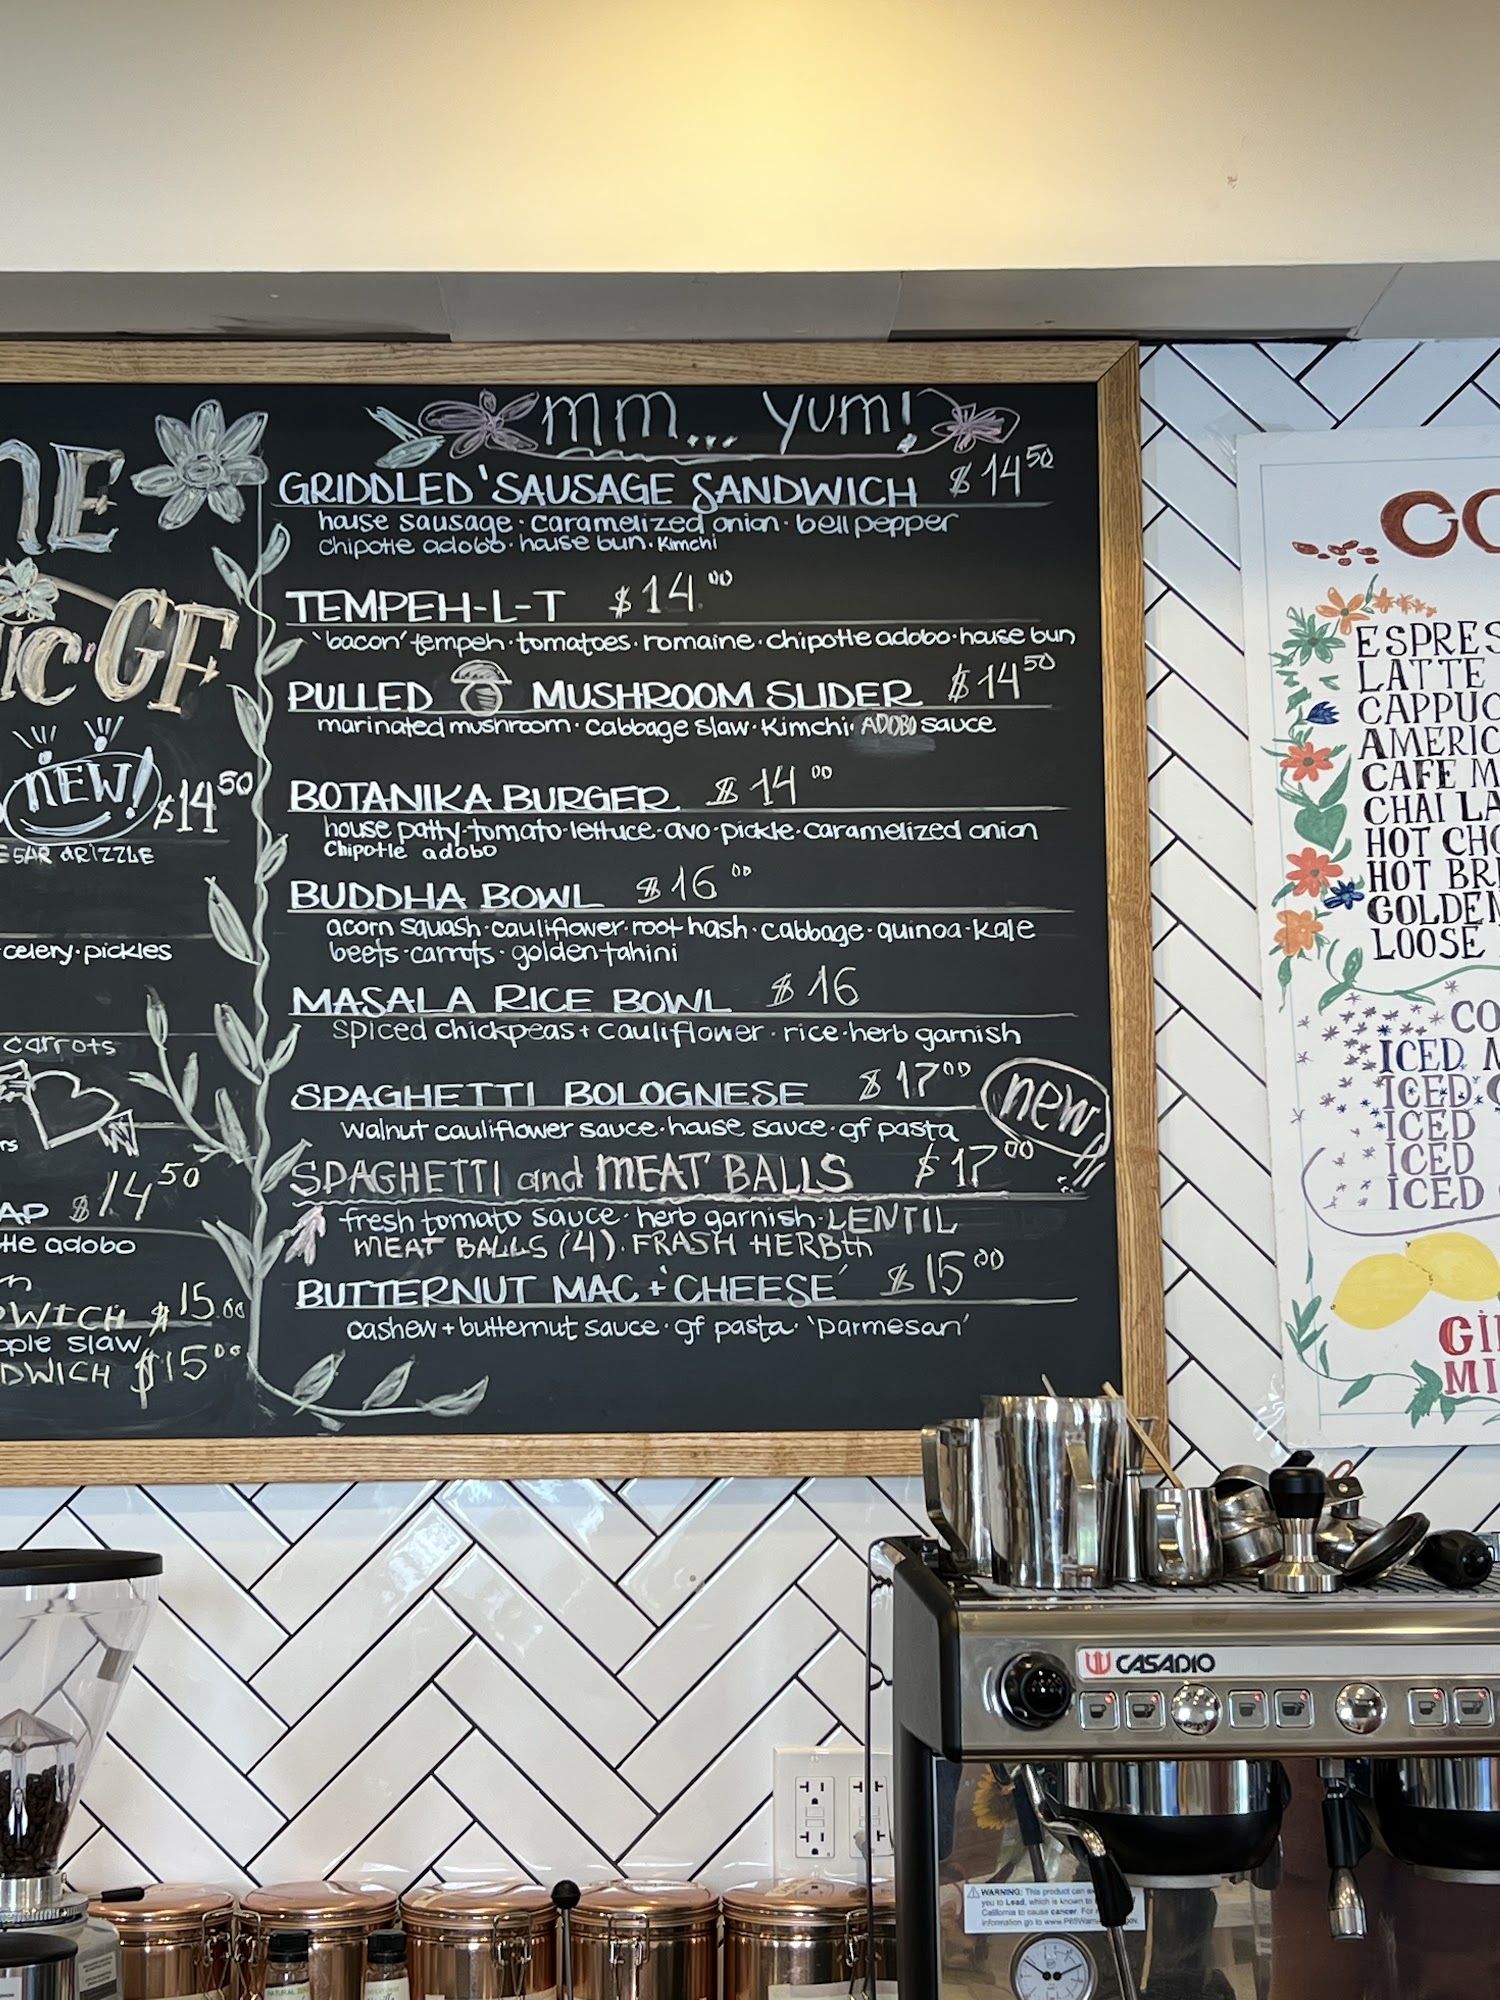 GF
NEW! $14 50
celery · pickles
carrots
$14 50
adobo
$15 00
slaw
$15 00
mm... yum!
GRIDDLED 'SAUSAGE SANDWICH $14 50
house sausage · caramelized onion · bell pepper
chipotle adobo · house bun · Kimchi
TEMPEH-L-T $14 00
'bacon' tempeh · tomatoes · romaine · chipotle adobo · house bun
PULLED MUSHROOM SLIDER $14 50
marinated mushroom · cabbage slaw · Kimchi · ADOBO sauce
BOTANIKA BURGER $14 00
house patty · tomato · lettuce · avo · pickle · caramelized onion
chipotle adobo
BUDDHA BOWL $16 00
acorn squash · cauliflower · root hash · cabbage · quinoa · kale
beets · carrots · golden tahini
MASALA RICE BOWL $16
spiced chickpeas + cauliflower · rice · herb garnish
SPAGHETTI BOLOGNESE $17 00 new!!
walnut cauliflower sauce · house sauce · gf pasta
SPAGHETTI and MEAT BALLS $17 00
fresh tomato sauce · herb garnish · LENTIL
MEAT BALLS (4) · FRASH HERBth
BUTTERNUT MAC + 'CHEESE' $15 00
cashew + butternut sauce · gf pasta · 'parmesan'
LATTE
CHAI
HOT
HOT
GOLDEN
LOOSE
ICED
ICED
ICED
ICED
ICED
CASADIO
WARNING: This product can
you to Lead, which is known to
California to cause cancer. For
information go to